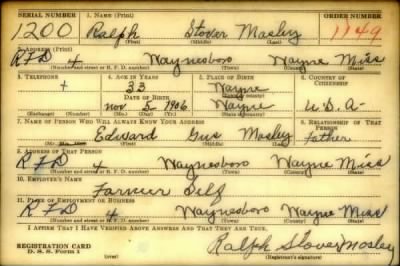 SERIAL NUMBER 1. NAME (Print) ORDER NUMBER
1200 Ralph Stover Mosley 1149
(First) (Middle) (Last)
2. ADDRESS (Print)
RFD 4 Waynesboro Wayne Miss
(Number and street or R. F. D. number) (Town) (County) (State)
3. TELEPHONE 4. AGE IN YEARS 5. PLACE OF BIRTH 6. COUNTRY OF CITIZENSHIP
33 Wayne
DATE OF BIRTH (Town or county)
Nov 5 1906 Wayne U.S.A-
(Exchange) (Number) (Mo.) (Day) (Yr.) (State or country)
7. NAME OF PERSON WHO WILL ALWAYS KNOW YOUR ADDRESS 8. RELATIONSHIP OF THAT PERSON
Edward Gus Mosley Father
(First) (Middle) (Last)
9. ADDRESS OF THAT PERSON
RFD 4 Waynesboro Wayne Miss
(Number and street or R. F. D. number) (Town) (County) (State)
10. EMPLOYER'S NAME
Farmer Self
11. PLACE OF EMPLOYMENT OR BUSINESS
RFD 4 Waynesboro Wayne Miss
(Number and street or R. F. D. number) (Town) (County) (State)
I AFFIRM THAT I HAVE VERIFIED ABOVE ANSWERS AND THAT THEY ARE TRUE.
REGISTRATION CARD
D. S. S. Form 1 Ralph Stover Mosley
(Registrant's signature)